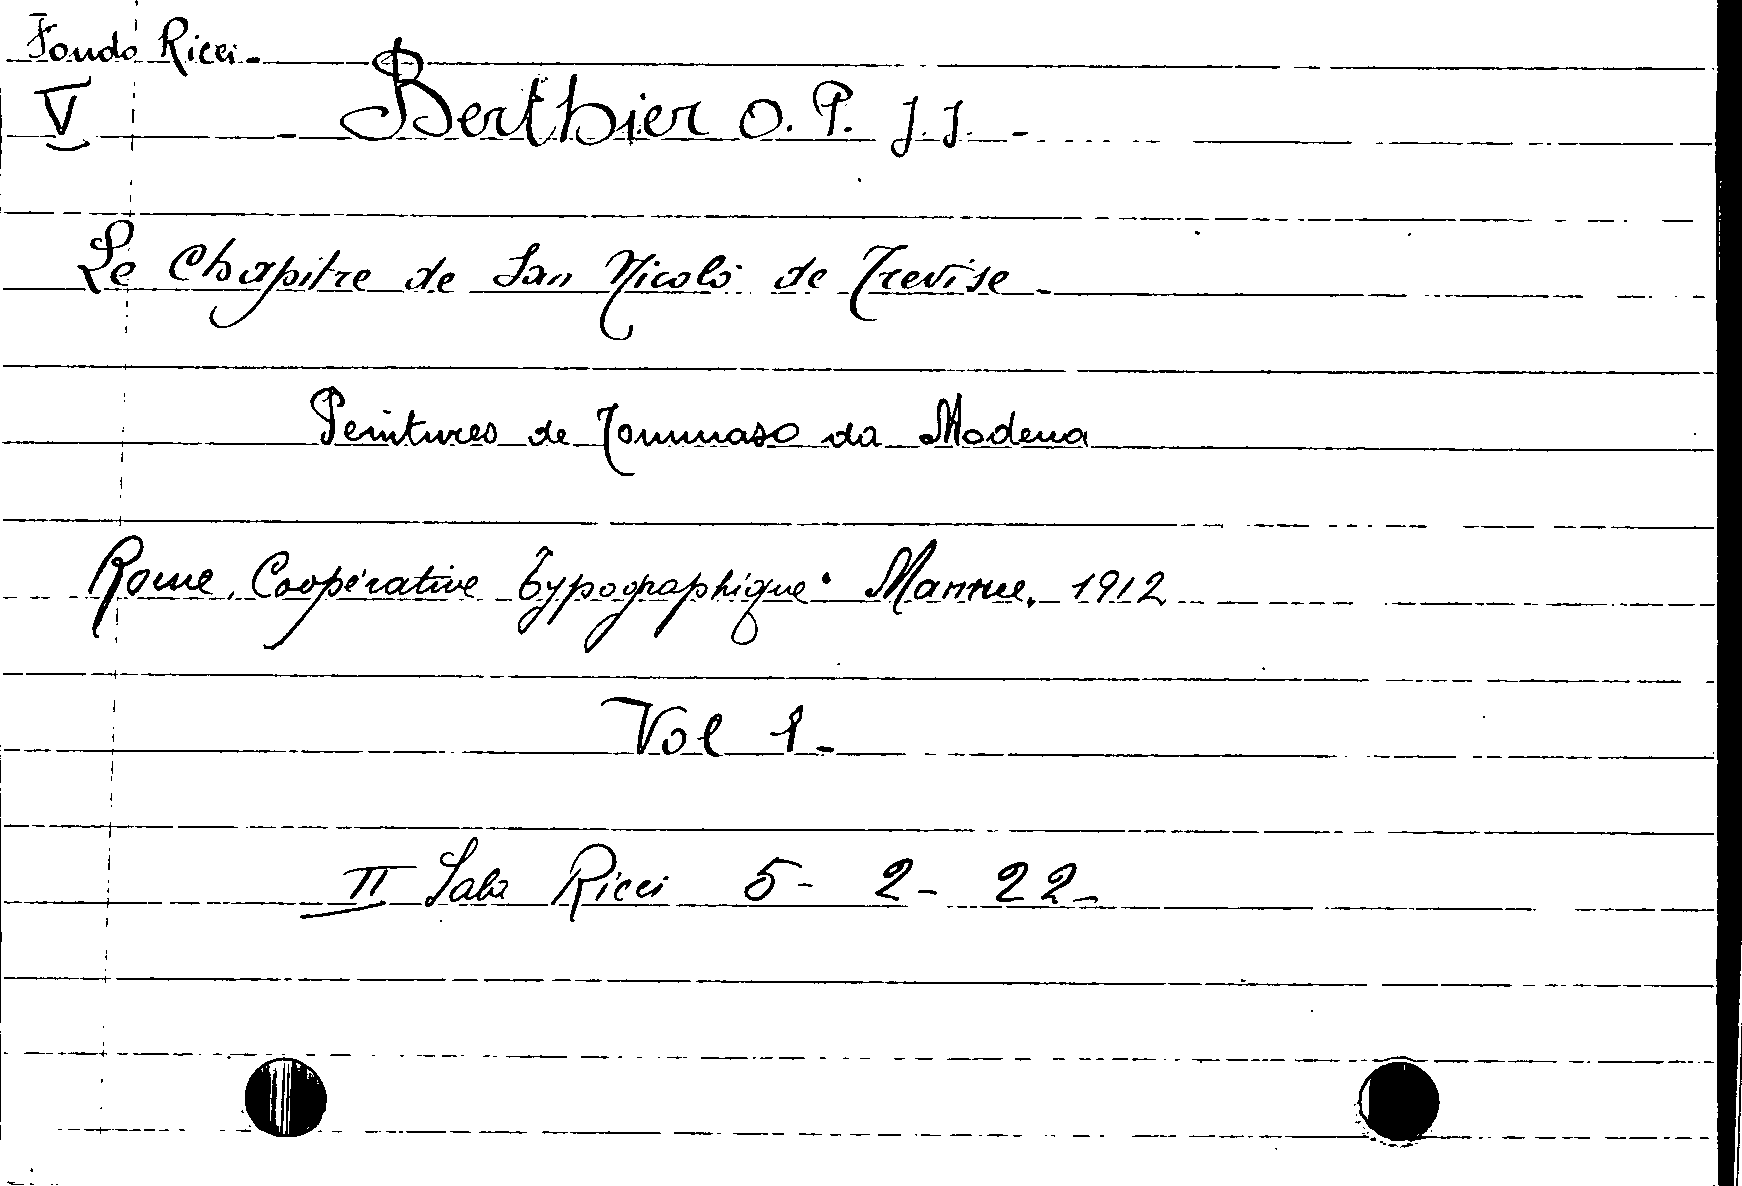 Fondo Ricci.
V - Berthier O. P. J. J. -
Le Chapitre de San Nicolò de Trevise.
Peintures de Tommaso da Modena
Rome, Coopérative typographique. Manuce, 1912
Vol 1.
II Sala Ricci 5- 2- 22-